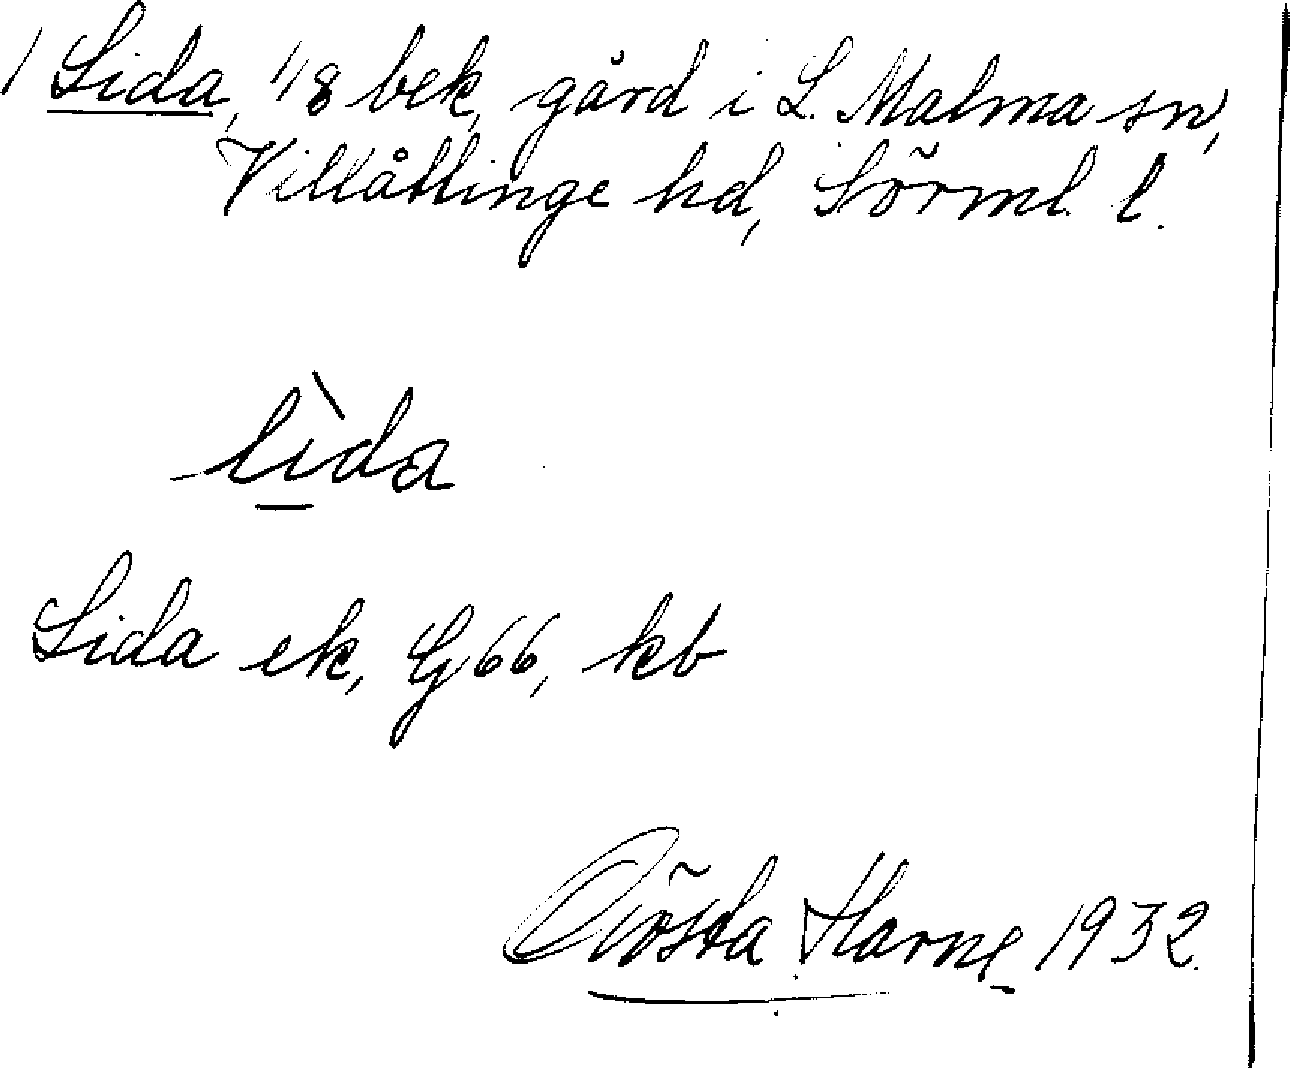 1 Lida, 1/8 bek, gård i L. Malma sn,
Villåttinge hd, Sörml. l.
lìda
Lida ek, G 66, kb
Gösta Harne 1932.